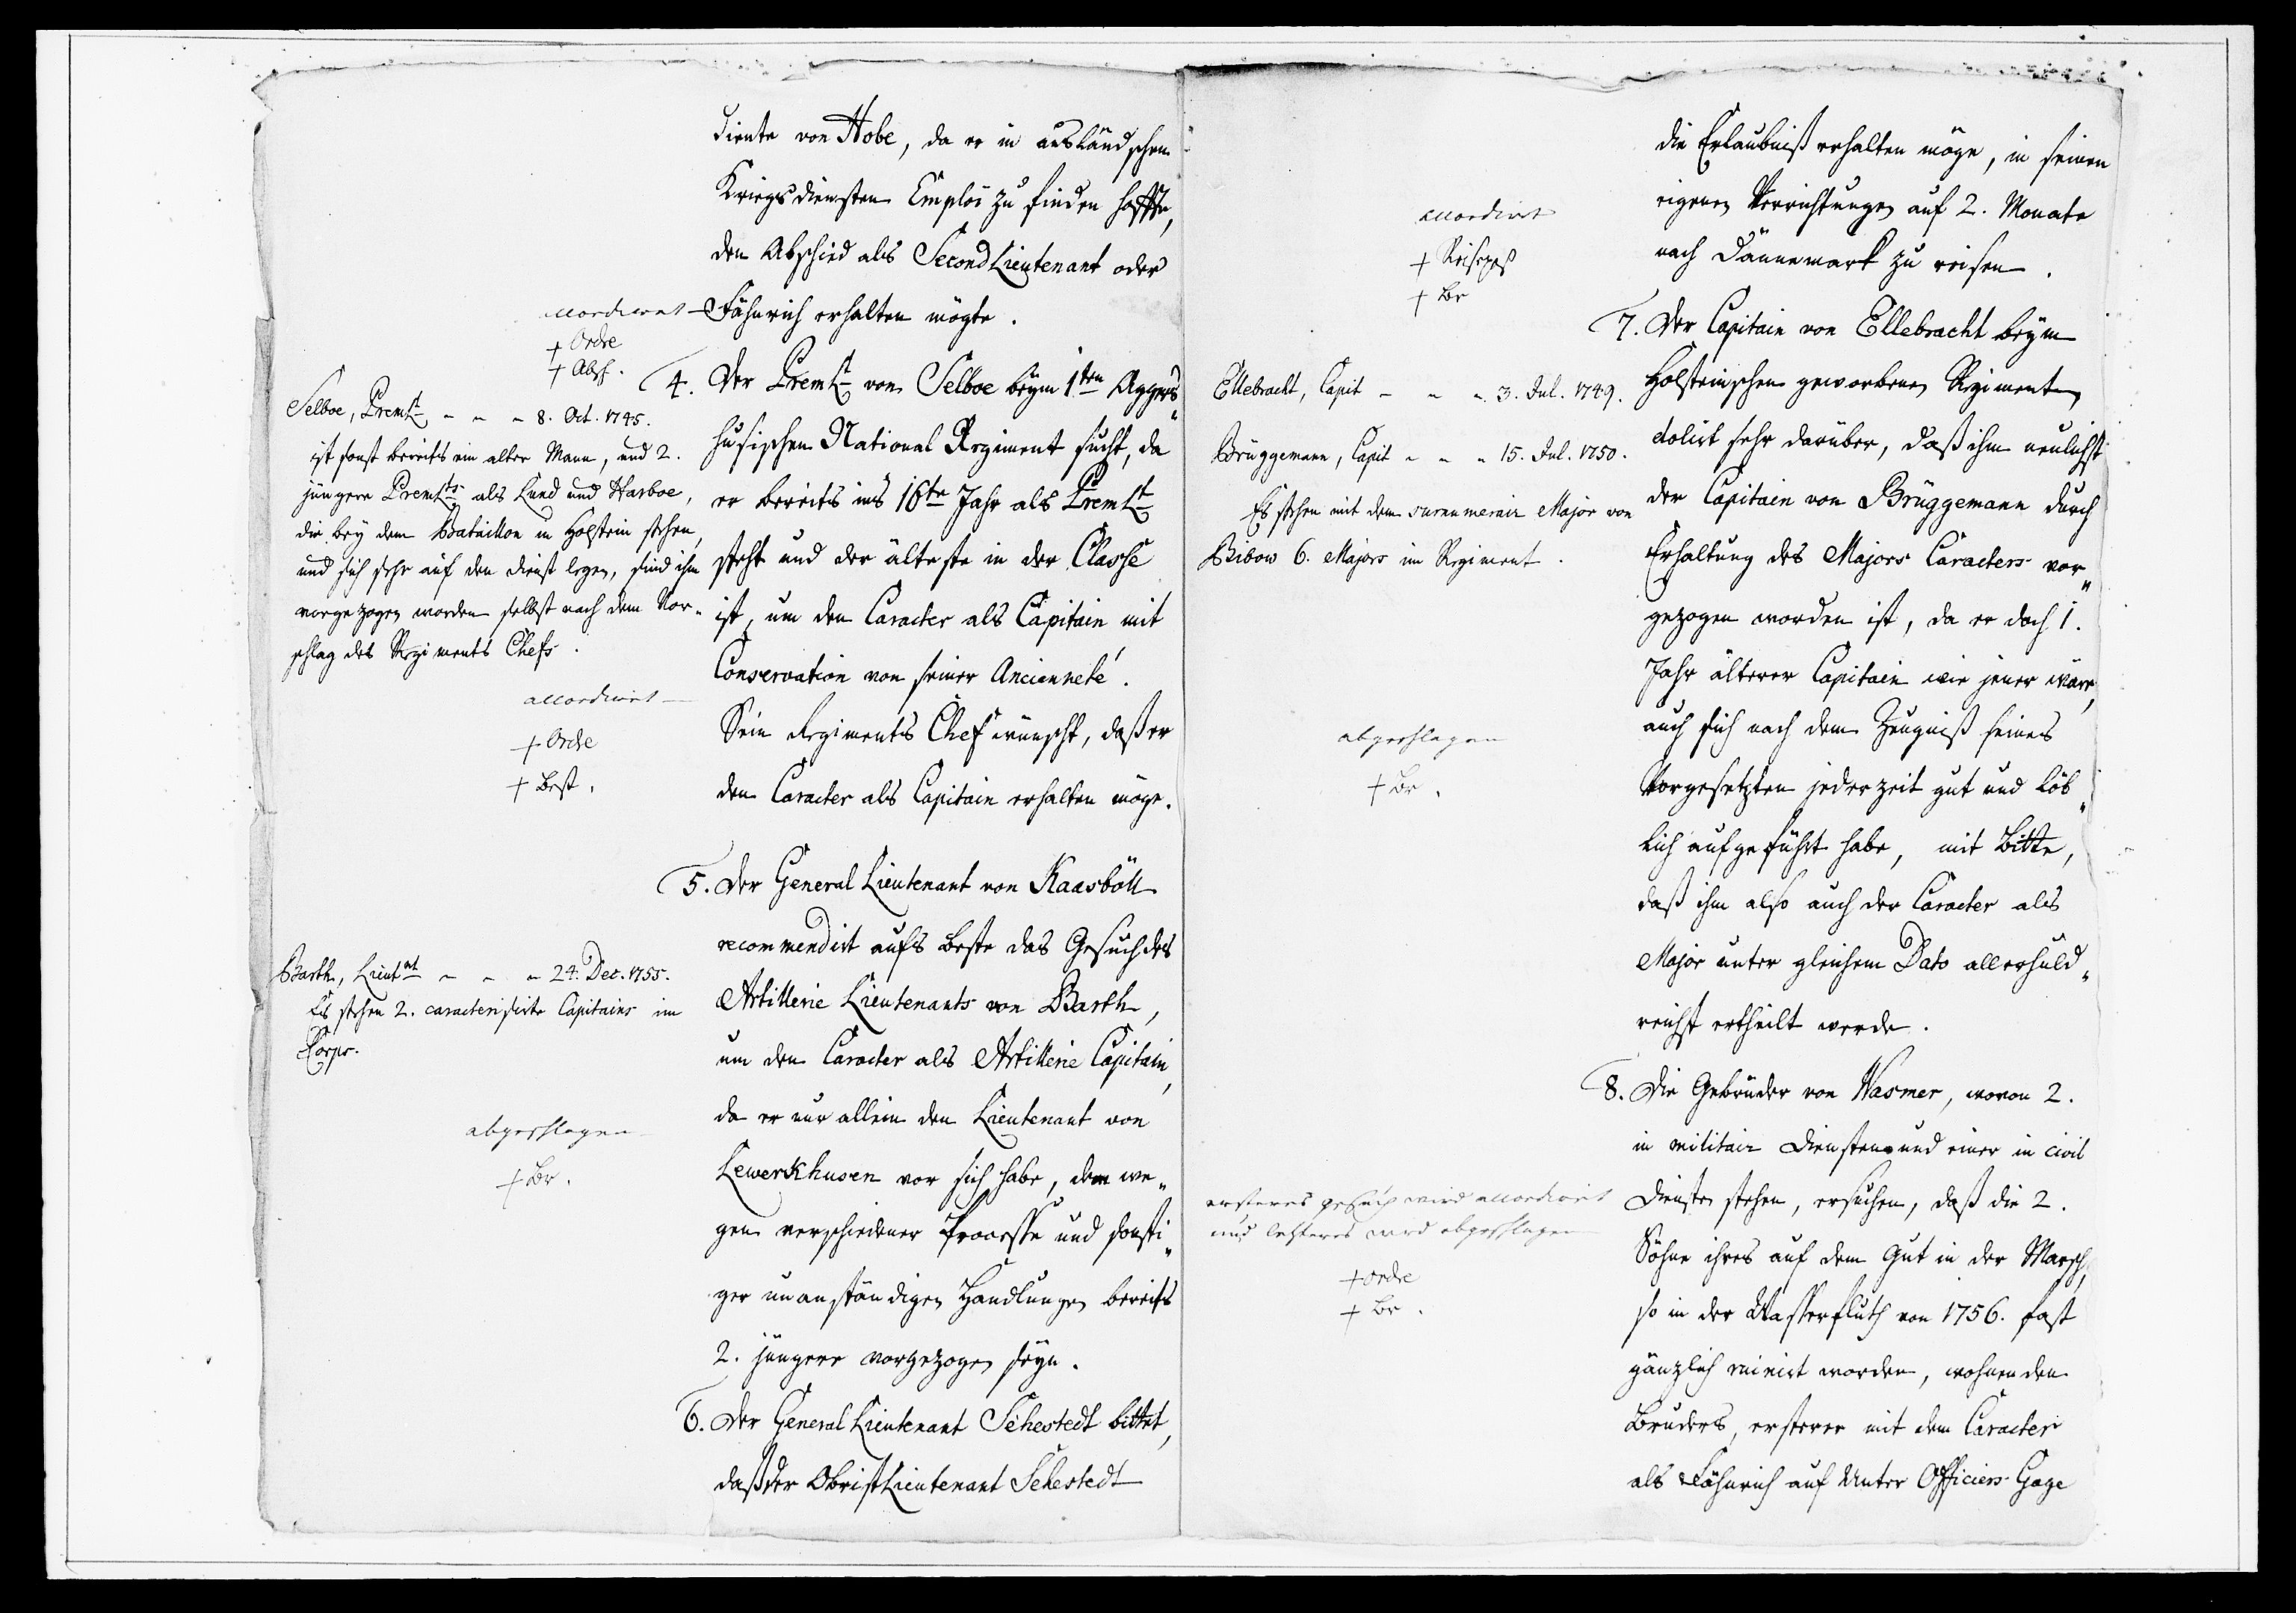 diente von Hobe, da er in ausländschen
Kriegsdiensten Emploi zu finden hoffte,
den Abschied als SecondLieutenant oder
accordiret
Fähnrich erhalten mögte.
+ Ordre
+ Absch.
4. Der PremLt von Selboe beym 1ten Aggers„
husischen National Regiment sucht, da
er bereits ins 16te Jahr als PremLt
steht und der älteste in der Classe
ist, um den Caracter als Capitain mit
Conservation von seiner Ancienneté.
Sein Regiments Chef wünscht, daß er
den Caracter als Capitain erhalten möge.
Selboe, PremLt - - - 8. Oct. 1745.
ist sonst bereits ein alter Mann, und 2.
jüngere PremLts als Lund und Harboe,
die bey dem Bataillon in Holstein stehen,
und sich sehr auf den Dienst legen, sind ihm
vorgezogen worden selbst nach dem Vor„
schlag des Regiments Chefs.
accordiret
+ Ordre
+ Best.
5. Der General Lieutenant von Kaasböll
recommendirt aufs beste das Gesuch des
Artillerie Lieutenants von Barth,
um den Caracter als Artillerie Capitain,
da er nur allein den Lieutenant von
Lewerkhusen vor sich habe, dem we„
gen verschiedener Processe und sonsti„
ger unanständigen Handlungen bereits
2. jüngere vorgezogen seyn.
Barth, Lieutnt - - - 24. Dec. 1755.
Es stehen 2. caracterisirte Capitains im
Corps.
abgeschlagen
+ Br.
6. Der General Lieutenant Sehestedt bittet,
daß der ObristLieutenant Sehestedt
die Erlaubniß erhalten möge, in seinen
eigenen Verrichtungen auf 2. Monate
nach Dännemark zu reisen.
accordirt
+ Reisepaß
+ Br
7. Der Capitain von Ellebracht beym
Holsteinischen geworbenen Regiment,
dolirt sehr darüber, daß ihm neulichst
der Capitain von Brüggemann durch
Erhaltung des Majors Caracters vor„
gezogen worden ist, da er doch 1.
Jahr älterer Capitain wie jener wäre,
auch sich nach dem Zeugniß seines
Vorgesetzten jederzeit gut und löb„
lich aufgeführt habe, mit Bitte,
daß ihm also auch der Caracter als
Major unter gleichem Dato allerhuld„
reichst ertheilt werde.
Ellebracht, Capit - - - 3. Jul. 1749.
Brüggemann, Capit - - - 15. Jul. 1750.
Es stehen mit dem surnumerair Major von
Bibow 6. Majors im Regiment.
abgeschlagen
+ Br.
8. Die Gebrüder von Wasmer, wovon 2.
in militair Diensten und einer in civil
Dienste stehen, ersuchen, daß die 2.
Söhne ihres auf dem Gut in der Marsch,
so in der Wasserfluth von 1756. fast
gänzlich ruinirt worden, wohnenden
Bruders, ersterer mit dem Caracter
als Fähnrich auf Unter Officiers Gage
ersteres gesuch wird accordiret
und letzteres wird abgeschlagen
+ Ordre
+ Br.